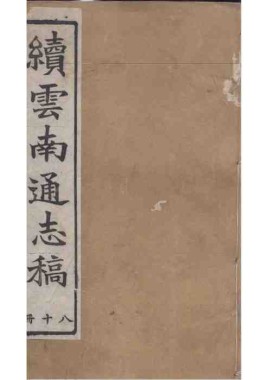 續雲南通志稿
八十冊